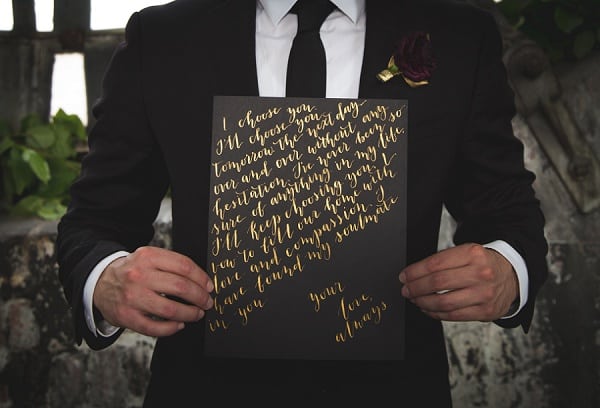 I choose you.
I'll choose you
tomorrow. The next day
over and over without any
hesitation. I've never been so
sure of anything in my life.
I'll keep choosing you. I
vow to fill our home with
love and compassion. I
have found my soulmate
in you
your
love,
always